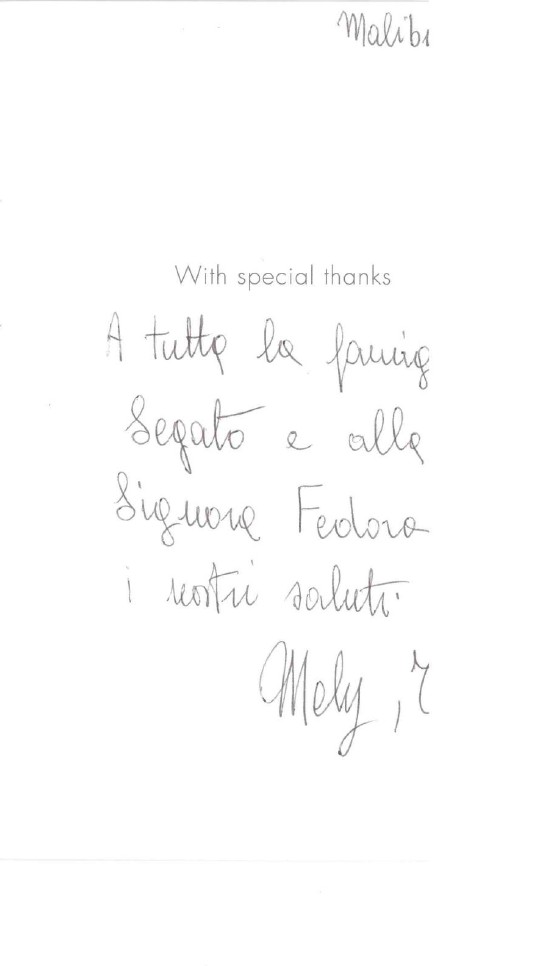 Malibu
With special thanks
A tutta la famig
Segato e alla
Signora Fedora
i nostri saluti.
Mely,